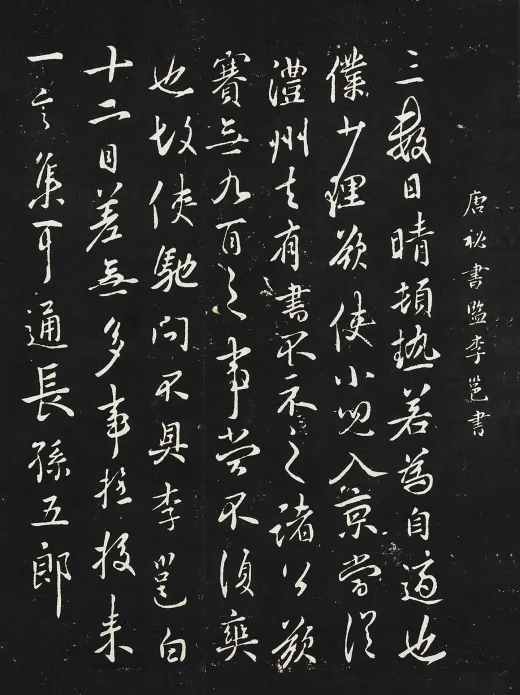 唐秘書監李邕書
三數日晴頓熱若為自適也
僕少理欲使小兒入京當從
澧州去有書不示之諸公欲
賽無九百之事當不須與
也故使馳問不具李邕白
十二日差無多事拄杖来
一言集可通長孫五郎